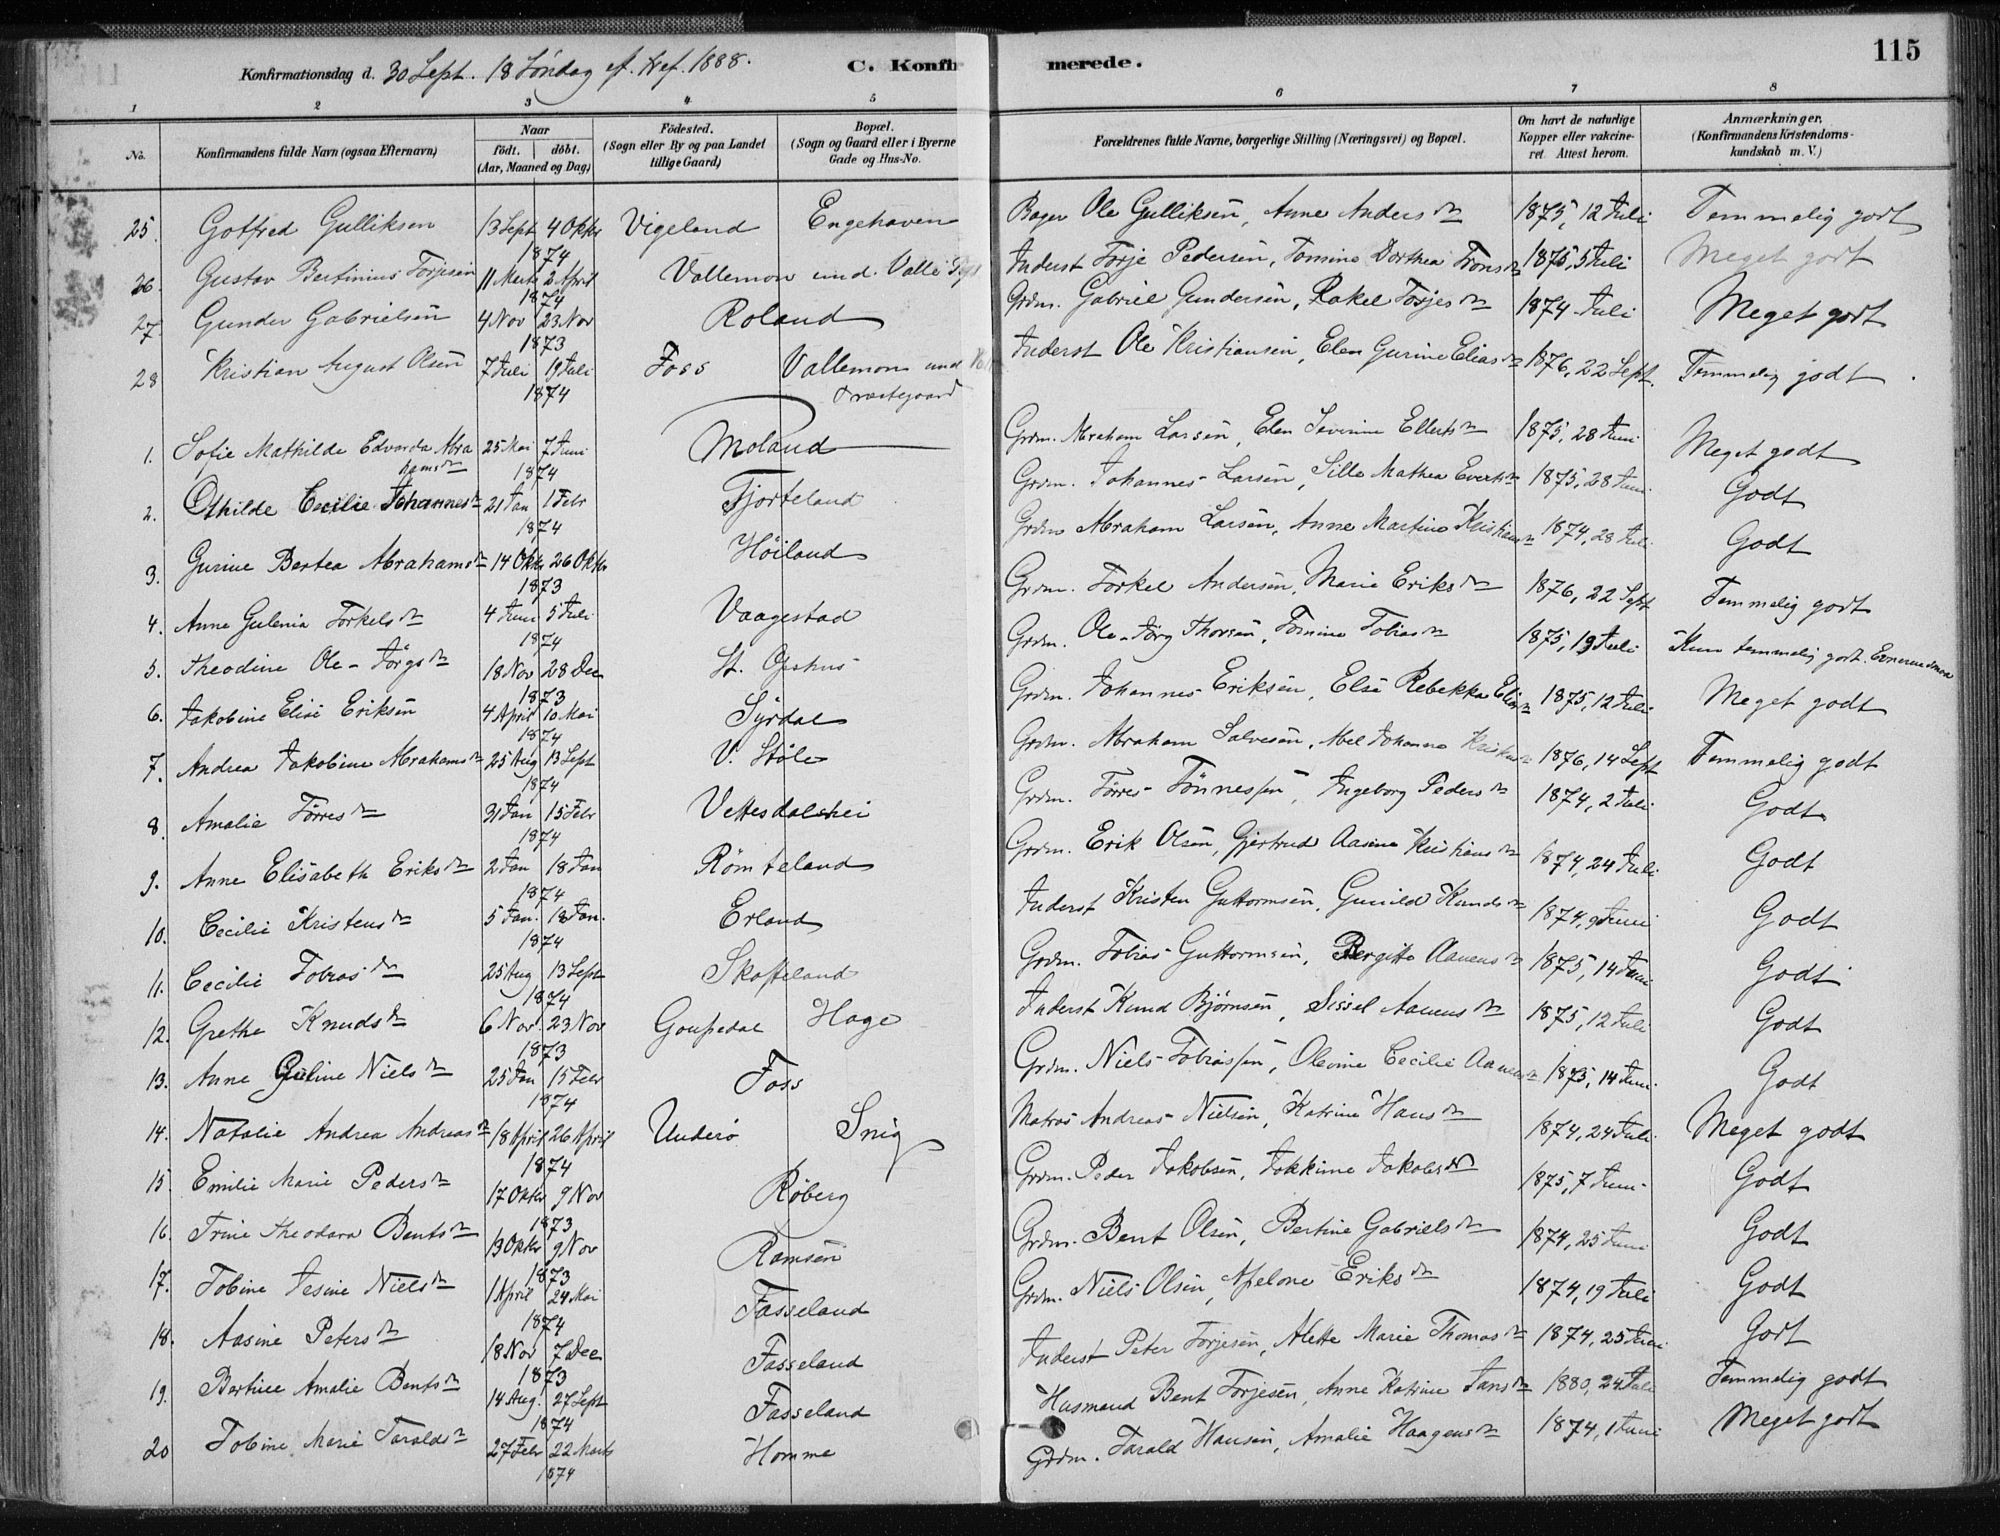 115
Konfirmationsdag d. 30 Sept. 18 Söndag ef. Tref. 1888.
C. Konfirmerede.
1 2 3 4 5 6 7 8
No.
Konfirmandens fulde Navn (ogsaa Efternavn)
Naar
födt. döbt.
(Aar, Maaned og Dag)
Födested.
(Sogn eller By og paa Landet
tillige Gaard)
Bopæl.
(Sogn og Gaard eller i Byerne
Gade og Hus-No.
Forældrenes fulde Navne, borgerlige Stilling (Næringsvei) og Bopæl.
Om havt de naturlige
Kopper eller vakcine-
ret. Attest herom.
Anmærkninger.
(Konfirmandens Kristendoms-
kundskab m. V.)
25. Gotfred Gulliksen 13 Sept 4 Oktr 1874 Vigeland Engehaven Bager Ole Gulliksen, Anne Andersdn 1875, 12 Juli Temmelig godt
26. Gustav Bertinius Torjesen 11 Marts 2 April 1874 Vallemon und. Valle Inderst Torje Pedersen, Tomine Dorthea Tronsdn 1875, 5 Juli Meget godt
27. Gunder Gabrielsen 4 Nov 23 Nov 1873 Roland Grdm. Gabriel Gundersen, Rakel Torjesdn 1874 Juli Meget godt
28 Kristian August Olsen 7 Juli 19 Juli 1874 Foss Vallemon und Præstegaard Inderst Ole Kristiansen, Elen Gurine Eliasdn 1876, 22 Sept. Temmelig godt
1. Sofie Mathilde Edvarda Abrahamsdn 25 Mai 7 Juni 1874 Moland Grdm. Abraham Larsen, Elen Severine Ellertsdn 1875, 28 Juni Meget godt
2. Othilde Cecilie Johannesdn 21 Jan 1 Febr 1874 Fjorteland Grdm. Johannes Larsen, Sille Mathea Evertsdn 1875, 28 Juni Godt
3. Gurine Bertea Abrahamsdn 14 Oktr 26 Oktr 1873 Höiland Grdm Abraham Larsen, Anne Martine Kristiansdn 1874, 28 Juli Godt
4. Anne Gulenia Torkelsdn 4 Juni 5 Juli 1874 Vaagestad Grdm. Torkel Andersen, Marie Eriksdn 1876, 22 Sept Temmelig godt
5. Theodine Ole-Jörgsdn 18 Nov 28 Dec 1873 St. Opshus Grdm. Ole-Jörg Thorsen, Tomine Tobiasdn 1875, 13 Juli Kun temmelig godt.
6. Jakobine Elise Eriksen 4 April 10 Mai 1874 Syrdal Grdm. Johannes Eriksen, Else Rebekka Eliasdn 1875, 12 Juli Meget godt
7. Andrea Jakobine Abrahamsdn 25 Aug 13 Sept 1874 V. Stöle Grdm. Abraham Salvesen, Abel Johanne 1876, 14 Sept Temmelig godt
8. Amalie Törresdn 31 Jan 15 Febr 1874 Vettesdalshei Grdm. Törres Tönnessen, Ingeborg Pedersdn 1874, 2 Juli Godt
9. Anne Elisabeth Eriksdn 2 Jan 18 Jan 1874 Römteland Grdm. Erik Olsen, Gjertrud Aasine Kristiansdn 1874, 24 Juli Godt
10. Cecilie Kristensdn 5 Jan. 18 Jan. 1874 Erland Inderst Kristen Guttormsen, Gunild Knudsdn 1874, 9 Juni Godt
11. Cecilie Tobiasdn 25 Aug 13 Sept 1874 Skofteland Grdm. Tobias Guttormsen, Bergite Aanensdn 1875, 14 Juni Godt
12. Grethe Knudsdn 6 Nov. 23 Nov 1873 Goupedal Hage Inderst Knud Bjørnsen, Sissel Aanensdn 1875, 12 Juli Godt
13. Anne Guline Nielsdn 25 Jan 15 Febr 1874 Foss Grdm. Niels Tobiassen, Olevine Cecilie Aanensdn 1875, 14 Juni Godt
14. Natalie Andrea Andreasdn 18 April 26 April 1874 Underö Snig Matros Andreas Nielsen, Katrine Hansdn 1874, 24 Juli Meget godt
15. Emilie Marie Pedersdn 17 Oktr 9 Nov 1873 Röberg Grdm. Peder Jakobsen, Jokkime Jakobsdn 1875, 7 Juni Godt
16. Trine Theodora Bentsdn 13 Oktr 9 Nov 1873 Ramsen Grdm. Bent Olsen, Bertine Gabrielsdn 1874, 25 Juni Godt
17. Tobine Jesine Nielsdn 1 April 24 Mai 1874 Fasseland Grdm. Niels Olsen, Apelone Eriksdn 1874, 19 Juli Godt
18. Aasine Petersdn 18 Nov 7 Dec 1873 Fasseland Inderst Peter Torjesen, Alette Marie Thomasdn 1874, 25 Juni Godt
19. Bertine Amalie Bentsdn 14 Aug. 27 Sept 1874 Fasseland Husmand Bent Torjesen, Anne Katrine Jansdn 1880, 24 Juli Temmelig godt
20 Tobine Marie Taraldsdn 27 Febr 22 Marts 1874 Homme Grdm. Tarald Hansen, Amalie Haagensdn 1874, 1 Juni Meget godt